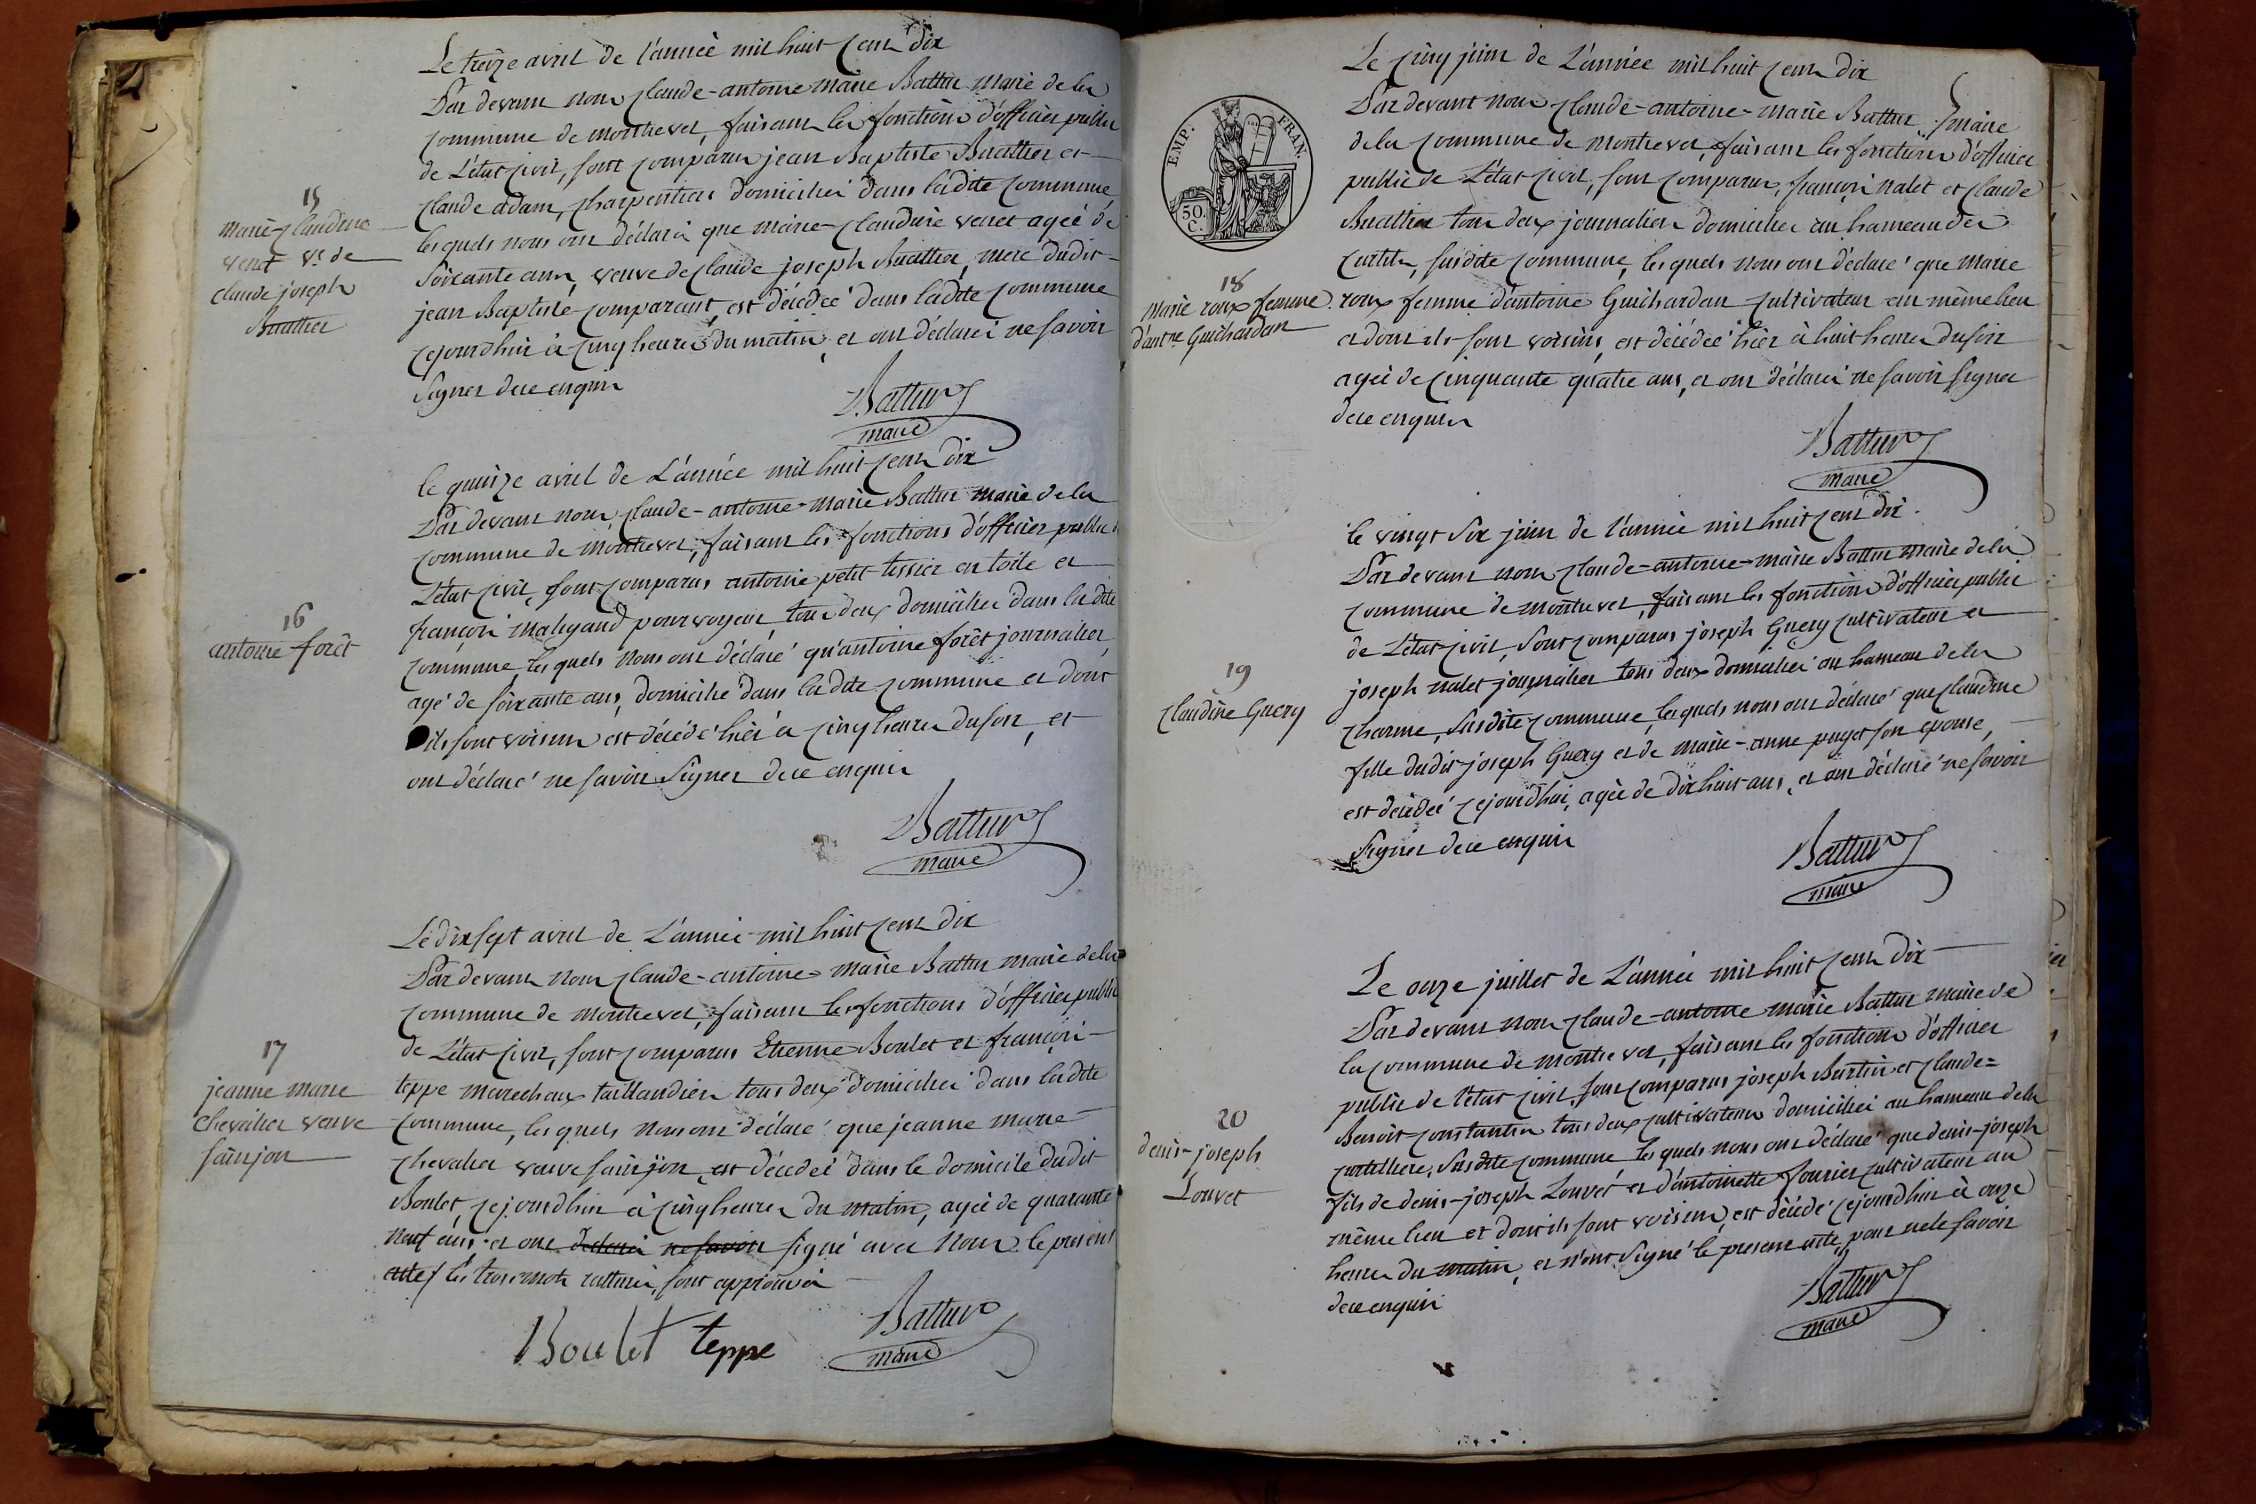 Le treize avril de l'année mil huit cent dix
Par devant nous claude-antoine marie Battur maire de la
commune de montrevel, faisant les fonctions d'officier public
de L'état civil, sont comparus jean Baptiste Buathier et
claude adam, charpentiers domiciliés dans ladite commune
lesquels nous ont déclaré que marie-claudine venet agée de
soixante ans, veuve de claude joseph Buathier, mere dudit
jean Baptiste comparant, est décédée dans ladite commune
cejourd'hui à cinq heures du matin, et ont déclaré ne savoir
signer de ce enquis
Battur
maire
15
marie-claudine
venet ve. de
claude joseph
Buathier
le quinze avril de L'année mil huit cent dix
Par devant nous claude-antoine-marie Battur maire de la
commune de montrevel, faisant les fonctions d'officier public
L'état civil, sont comparus antoine petit tissier en toile et
françois maligand pourvoyeur, tous deux domiciliés dans ladite
commune lesquels nous ont déclaré qu'antoine forêt journalier
agé de soixante ans, domicilié dans ladite commune et dont
ils sont voisins est décédé hiér a cinq heures du soir, et
ont déclaré ne savoir signer de ce enquis
Battur
maire
16
antoine forêt
Le dixsept avril de L'année mil huit cent dix
Par devant nous claude-antoine-marie Battur maire de la
commune de montrevel, faisant les fonctions d'officier public
de L'état civil, sont comparus Etienne Boulet et françois
teppe marechaux taillandiers tous deux domiciliés dans ladite
commune, lesquels nous ont déclaré que jeanne marie
chevalier veuve sainjon, est décédée dans le domicile dudit
Boulet, cejourd'hui à cinq heures du matin, agée de quarante
neuf ans. et ont declaré ne savoir signé avec nous le présent
acte / les trois mots raturés, sont approuvés
Boulet teppe Battur
maire
17
jeanne marie
chevalier veuve
sainjon
Le cinq juin de L'année mil huit cent dix
Par devant nous claude-antoine-marie Battur, maire
de la commune de montrevel, faisant les fonctions d'officier
public de L'état civil, sont comparus, françois nalet et claude
Buathier tous deux journaliers domiciliés au hameau des
curtils, susdite commune, lesquels nous ont déclaré que marie
roux femme d'antoine Guichardan cultivateur au même lieu
et dont ils sont voisins, est décédée hiér à huit heures du soir
agée de cinquante quatre ans, et ont déclaré ne savoir signer
de ce enquis
Battur
maire
EMP. FRAN.
50.
C.
18
marie roux femme
d'antne. Guichardan
le vingt six juin de l'année mil huit cent dix.
Par devant nous claude-antoine-marie Battur maire de la
commune de montrevel, faisant les fonctions d'officier public
de L'état civil, sont comparus joseph Guery cultivateur et
joseph nalet journalier tous deux domiciliés au hameau de la
charme, susdite commune, lesquels nous ont déclaré que claudine
fille dudit joseph Guery et de marie-anne puget son epouse,
est décédée cejourd'hui, agée de dix huit ans, et ont déclaré ne savoir
signer de ce enquis
Battur
maire
19
claudine Guery
Le onze juillet de L'année mil huit cent dix
Par devant nous claude-antoine marie Battur maire de
la commune de montrevel, faisant les fonctions d'officier
public de l'état civil, sont comparus joseph Burtin et claude=
Benoit constantin tous deux cultivateurs domiciliés au hameau de la
curtilliere, susdite commune lesquels nous ont déclaré que denis-joseph
fils de denis-joseph Louvet et d'antoinette fourier cultivateur au
même lieu et dont ils sont voisins, est décédé cejourd'hui à onze
heures du matin, et n'ont signé le present acte, pour ne le savoir
de ce enquis
Battur
maire
20
denis-joseph
Louvet